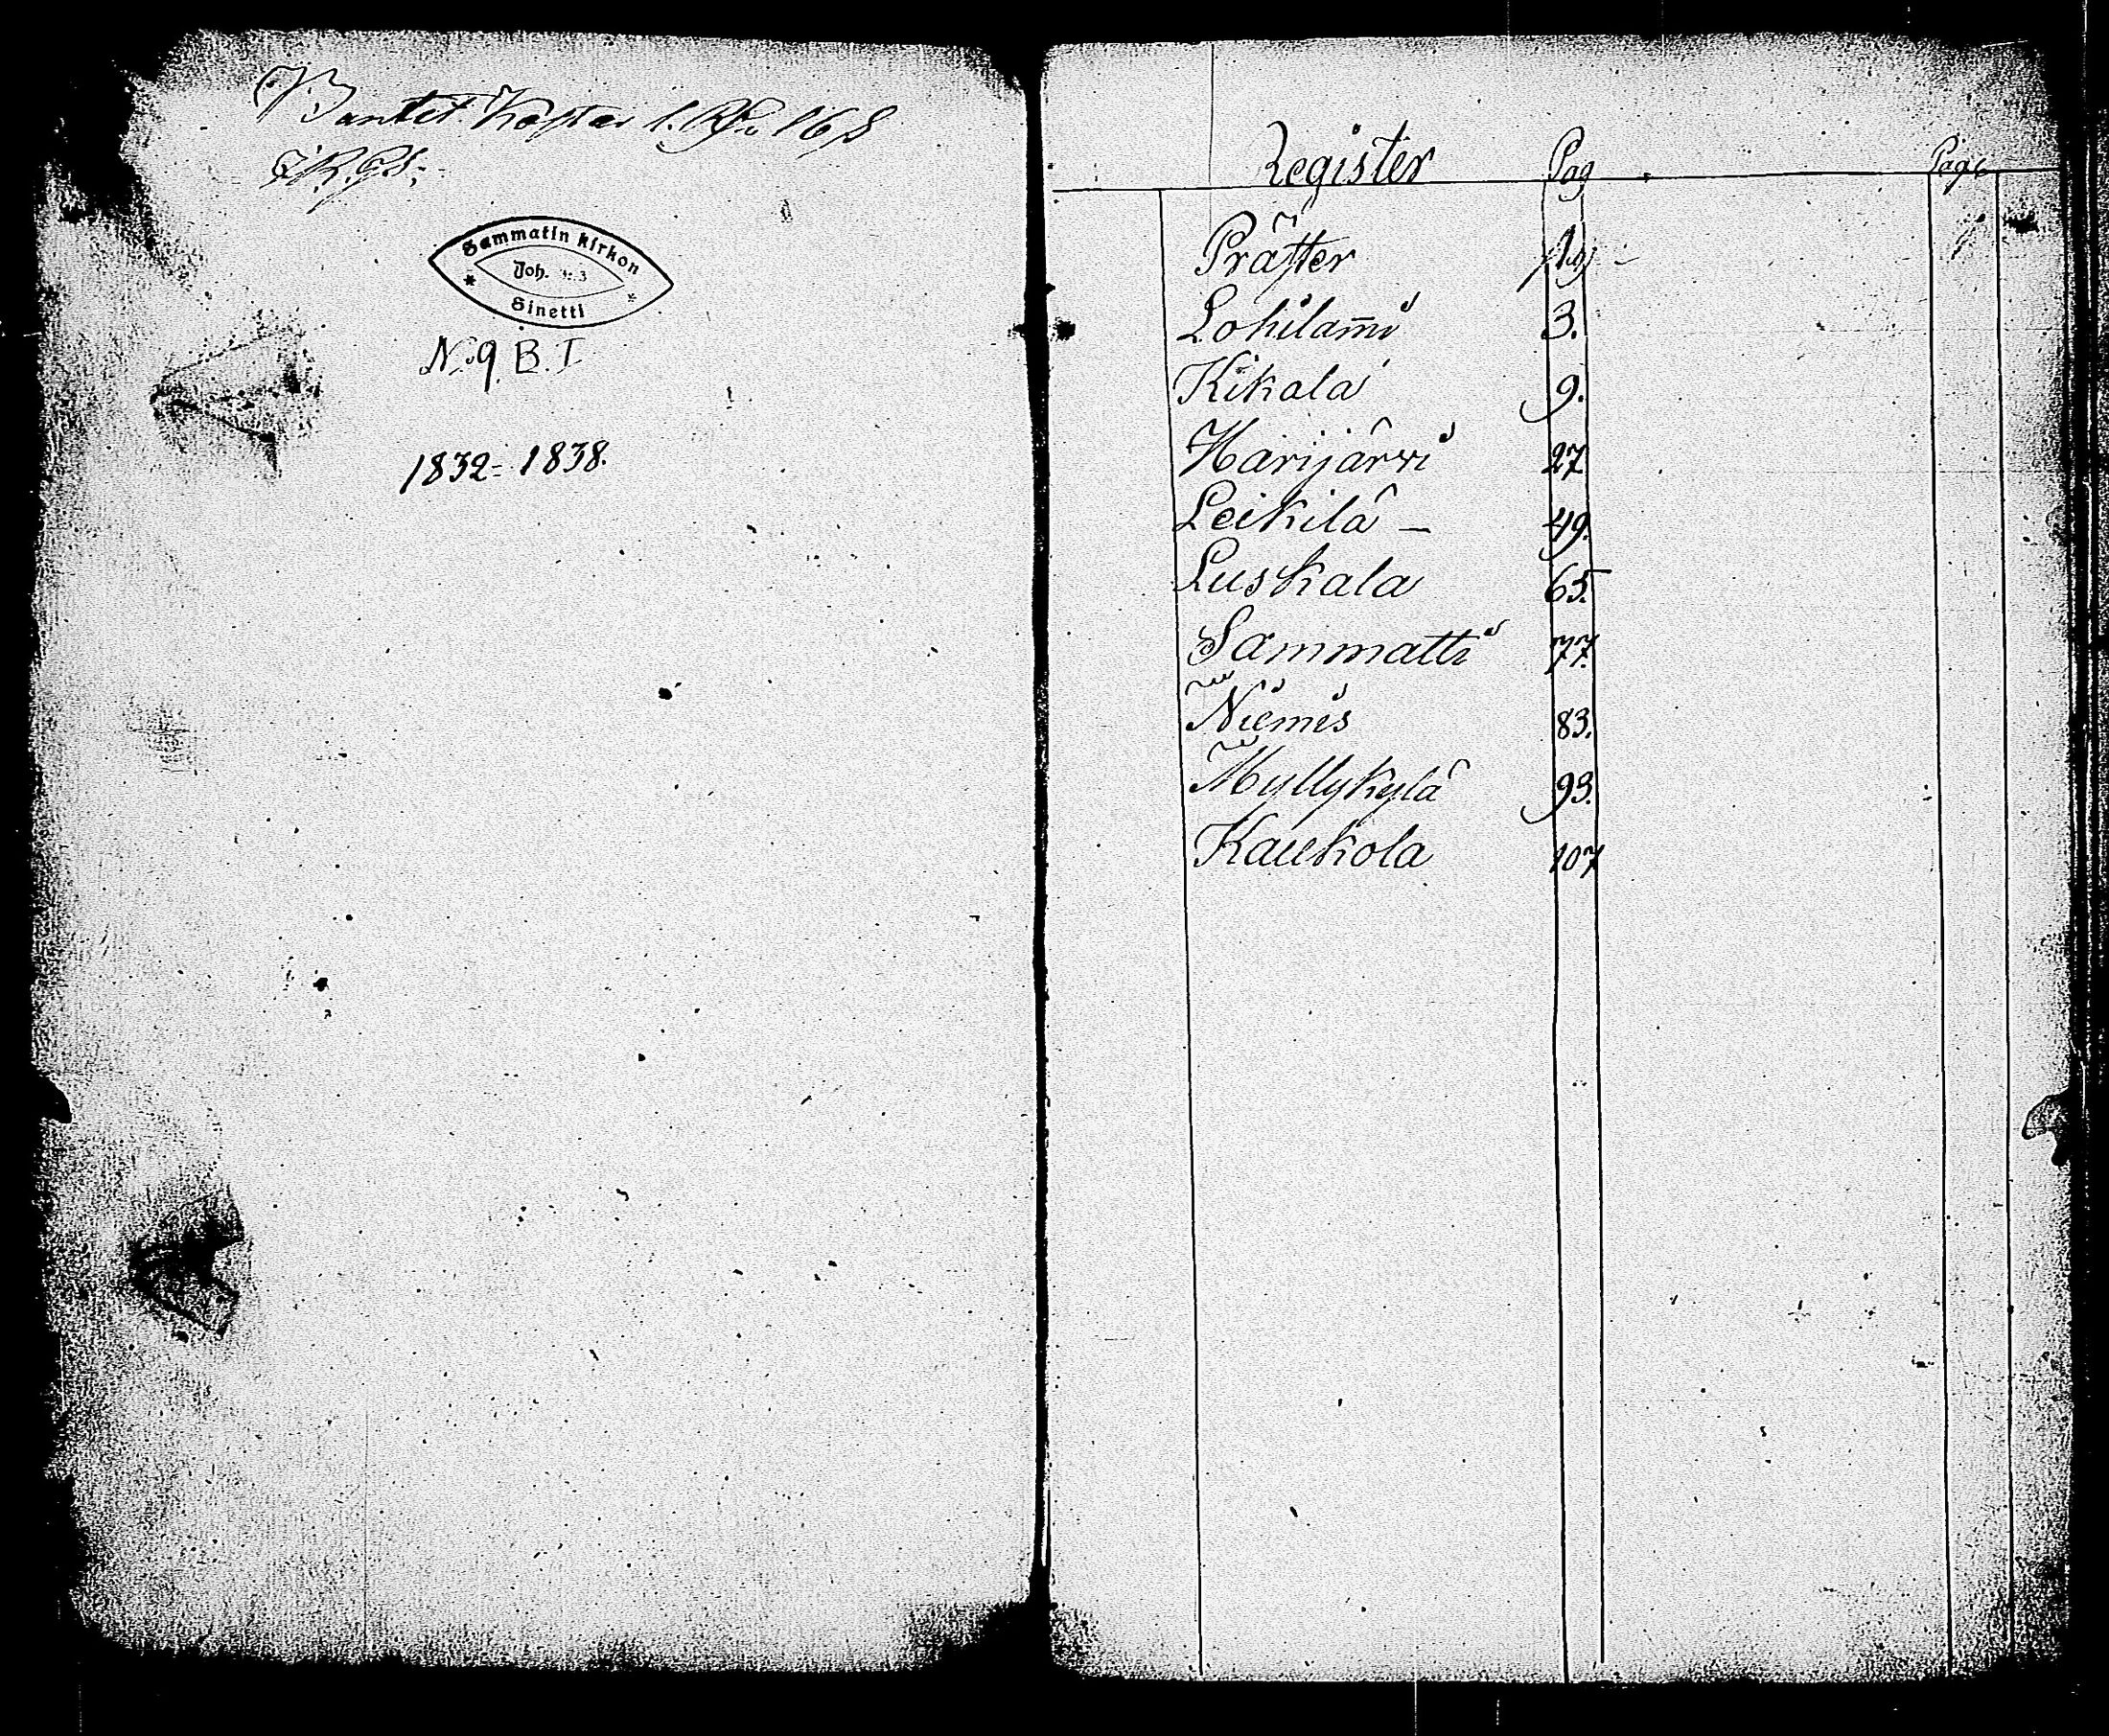 Bandet Kostar 1. Rd. 16 s
Sammatin kirkon
Joh. 3:3
Sinetti
No 9. B. I
1832 = 1838.
Register Pag Page
Präster 1.
Lohilam̄i 3.
Kikala 9.
Harijärvi 27
Leikilä — 49.
Luskala 65.
Sammatti 77.
Niemis 83.
Myllykylä 93.
Kaukola 107